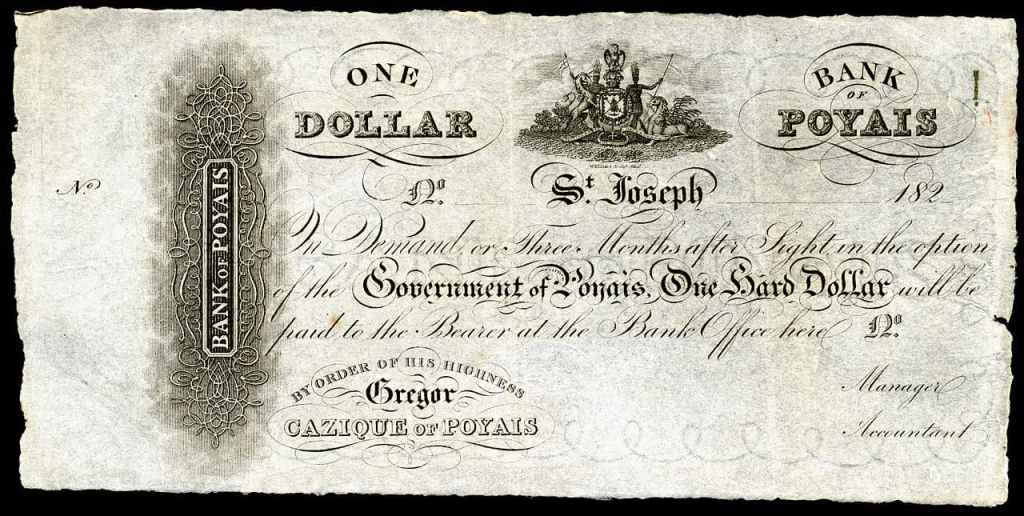 ONE
DOLLAR
BANK
OF
POYAIS
BANK OF POYAIS
No
No. St. Joseph 182
On Demand, or Three Months after Sight in the option
of the Government of Poyais, One Hard Dollar will be
paid to the Bearer at the Bank Office here No.
BY ORDER OF HIS HIGHNESS
Gregor
CAZIQUE OF POYAIS
Manager
Accountant